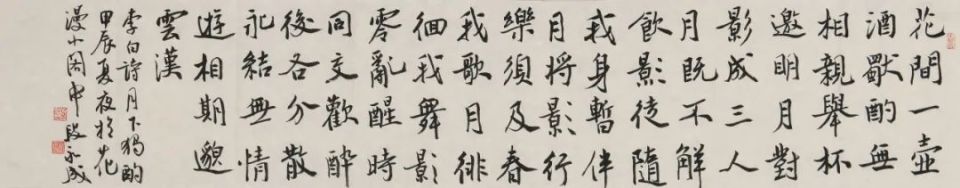 花間一壺
酒獨酌無
相親舉杯
邀明月對
影成三人
月既不解
飲影徒隨
我身暫伴
月將影行
樂須及春
我歌月徘
徊我舞影
零亂醒時
同交歡醉
後各分散
永結無情
遊相期邈
雲漢
李白詩月下獨酌
甲辰夏夜於花
漫小閣永成